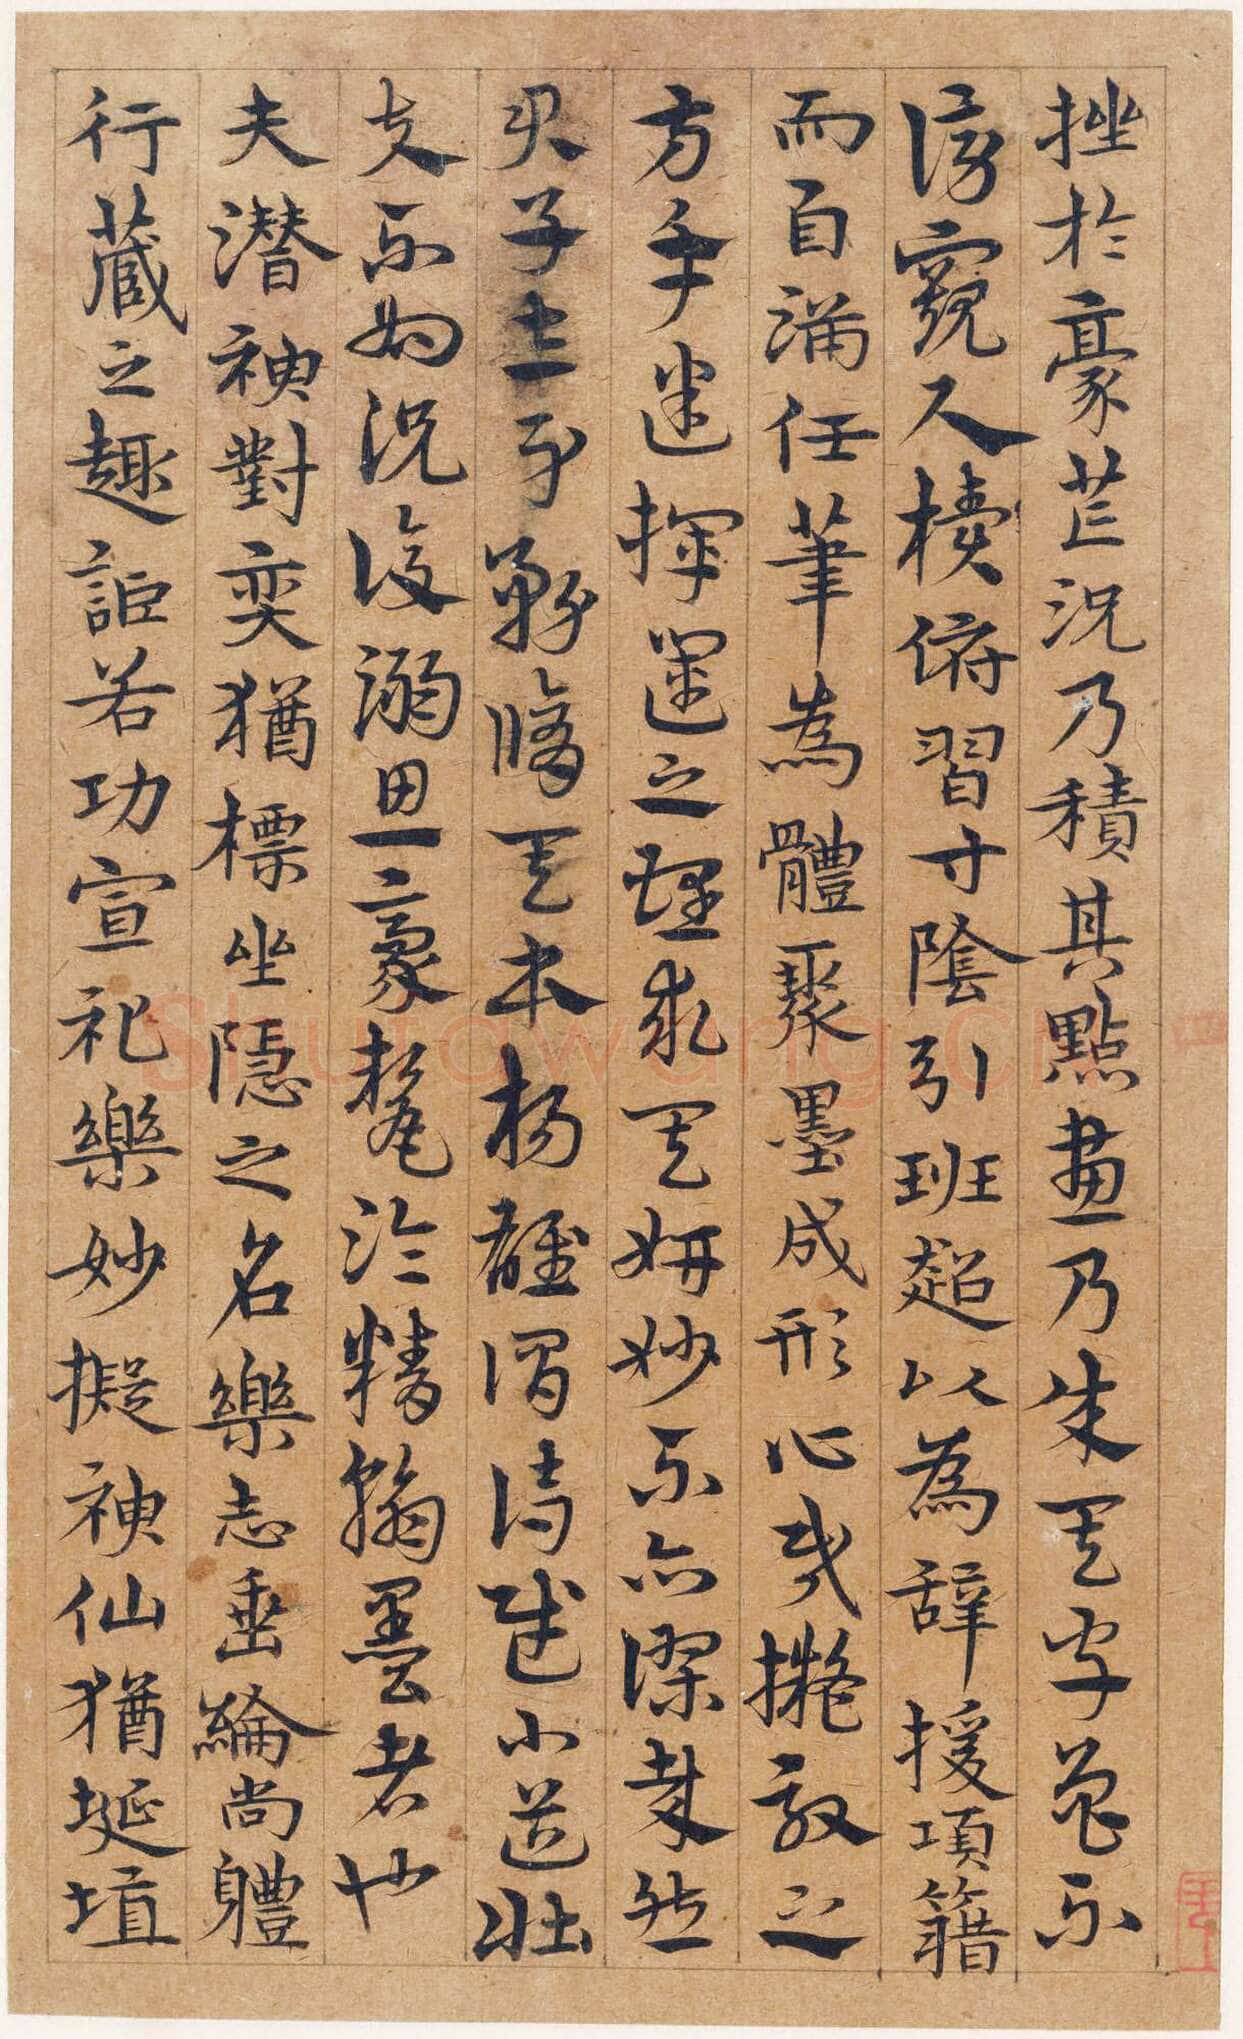 挫於豪芒況乃積其點畫乃成其字曾不
傍窺尺牘俯習寸陰引班超以為辭援項籍
而自滿任筆為體聚墨成形心昏擬效之
方手迷揮運之理求其妍妙不亦謬哉然
君子立身務脩其本楊雄謂詩賦小道壯
夫不為況復溺思豪氂淪精翰墨者也
夫潛神對奕猶標坐隱之名樂志垂綸尚軆
行藏之趣詎若功宣礼樂妙擬神仙猶埏埴
Shufawang.cn